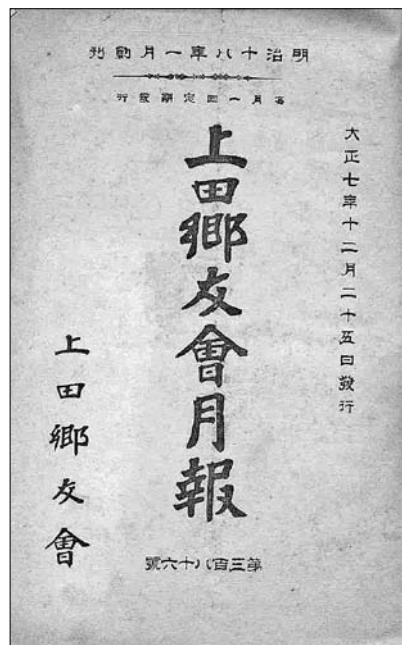 明治十八年一月創刊
每月一回定期發行
大正七年十二月二十五日發行
上田鄉友會月報
上田鄉友會
第三百八十六號